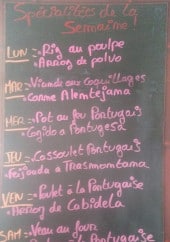 Spécialitées de la
Semaine!
LUN =• Riz au poulpe
• Arroz de polvo
MAR =• Viande aux coquillages
• Carne Alentejana
MER =• Pot au feu Portugais
• Cozido a Portugesa
JEU =• Cassoulet Portugais
• Feijoada a Trasmontana
VEN =• Poulet à la Portugaise
• Arroz de Cabidela
SAM =• Veau au four
Portugaise